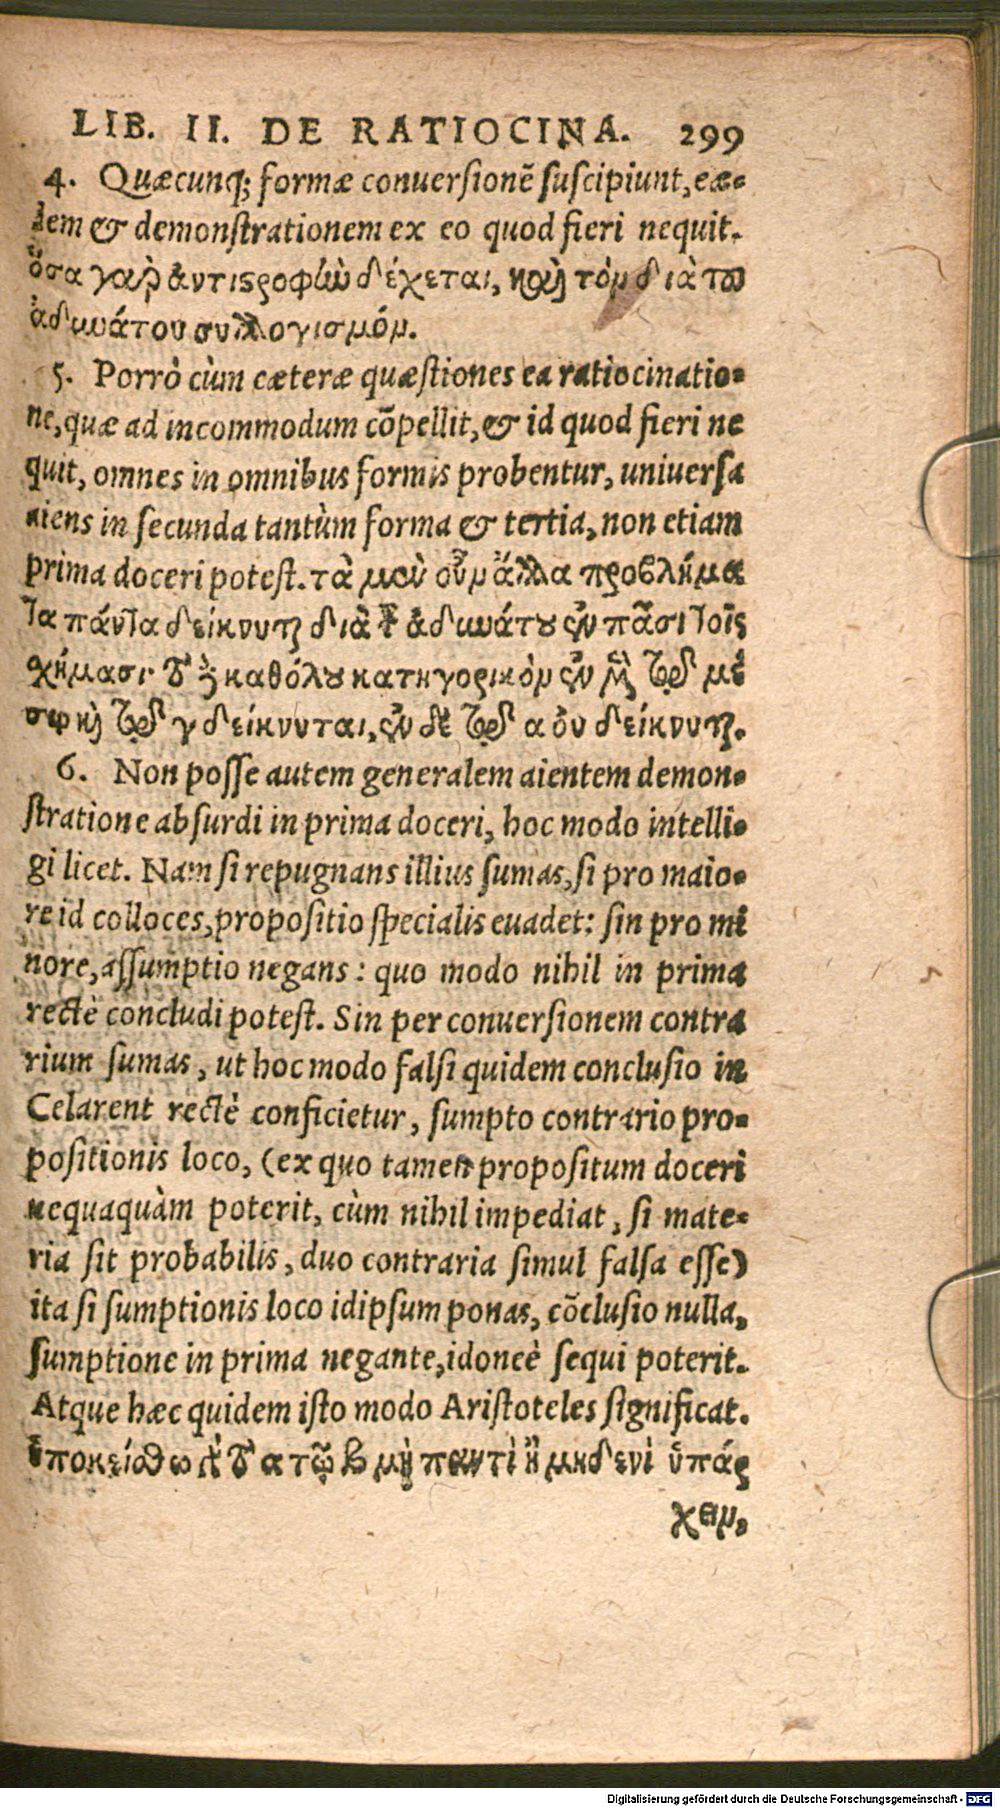 LIB. II. DE RATIOCINA. 299
4. Quæcunq; formæ conuersionẽ suscipiunt, eæ-
dem & demonstrationem ex eo quod fieri nequit.
ὅσα γὰρ ἀντιστροφὴν δέχεται, καὶ τὸν διὰ τοῦ
ἀδυνάτου συλλογισμόν.
5. Porrò cùm cæteræ quæstiones ea ratiocinatio-
ne, quæ ad incommodum cõpellit, & id quod fieri ne
quit, omnes in omnibus formis probentur, uniuersa
aiens in secunda tantùm forma & tertia, non etiam
prima doceri potest. τὰ μὲν οὖν ἄλλα προβλήμα
τα πάντα δείκνυται διὰ τοῦ ἀδυνάτου ἐν πᾶσι τοῖς
σχήμασι· τὸ δὲ καθόλου κατηγορικὸν ἐν μὲν τῷ μέ
σῳ καὶ τῷ γ δείκνυνται, ἐν δὲ τῷ α οὐ δείκνυται.
6. Non posse autem generalem aientem demon-
stratione absurdi in prima doceri, hoc modo intelli-
gi licet. Nam si repugnans illius sumas, si pro maio-
re id colloces, propositio specialis euadet: sin pro mi
nore, assumptio negans: quo modo nihil in prima
rectè concludi potest. Sin per conuersionem contra
rium sumas, ut hoc modo falsi quidem conclusio in
Celarent rectè conficietur, sumpto contrario pro-
positionis loco, (ex quo tamen propositum doceri
nequaquàm poterit, cùm nihil impediat, si mate-
ria sit probabilis, duo contraria simul falsa esse)
ita si sumptionis loco idipsum ponas, cõclusio nulla,
sumptione in prima negante, idoneè sequi poterit.
Atque hæc quidem isto modo Aristoteles significat.
ὑποκείσθω γὰρ τὸ α τῷ β μὴ παντὶ ἢ μηδενὶ ὑπάρ
χειν,
Digitalisierung gefördert durch die Deutsche Forschungsgemeinschaft - DFG